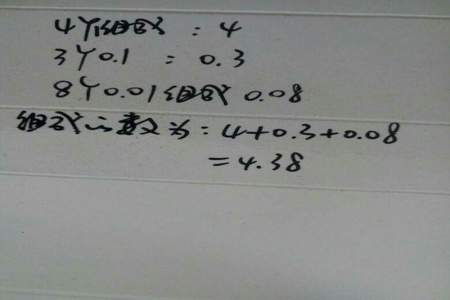 4个1组成：4
3个0.1 = 0.3
8个0.01组成 0.08
组成的数为：4+0.3+0.08
=4.38